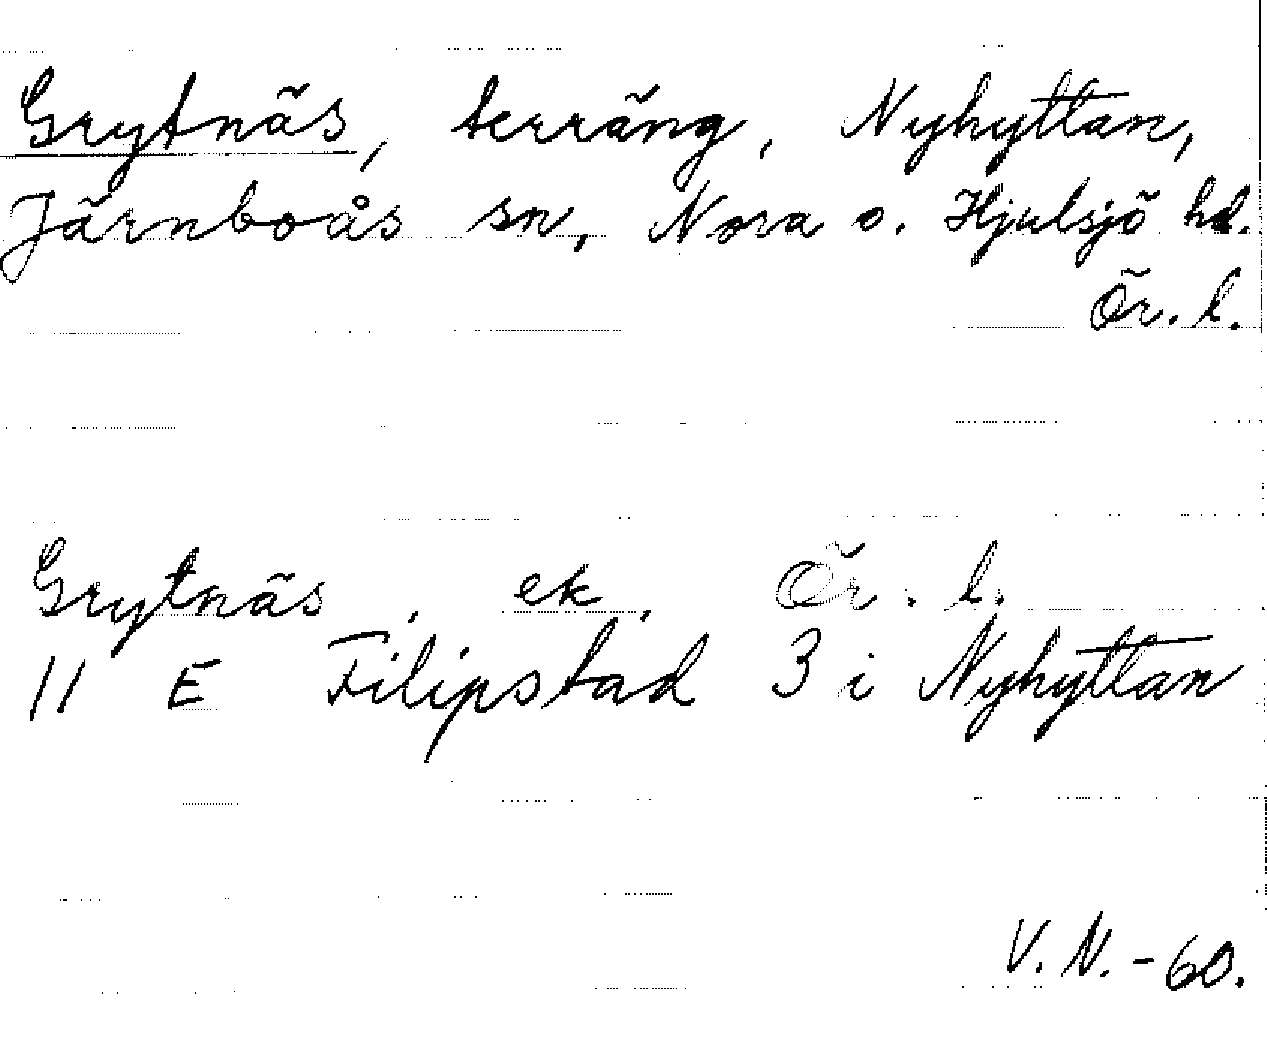 Grytnäs, terräng, Nyhyttan,
Järnboås sn, Nora o. Hjulsjö hd.
Ör. l.
Grytnäs, ek, Ör. l.
11 E Filipstad 3 i Nyhyttan
V. N. - 60.